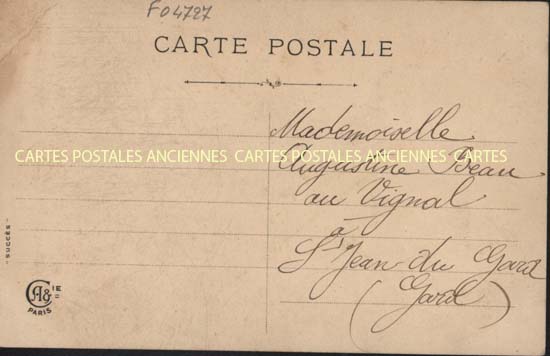 F04727
CARTE POSTALE
Mademoiselle
CARTES POSTALES ANCIENNES CARTES POSTALES ANCIENNES CARTES
Augustine Beau
au Vignal
à
St Jean du Gard
(Gard)
"SUCCÈS"
A & CIE
PARIS